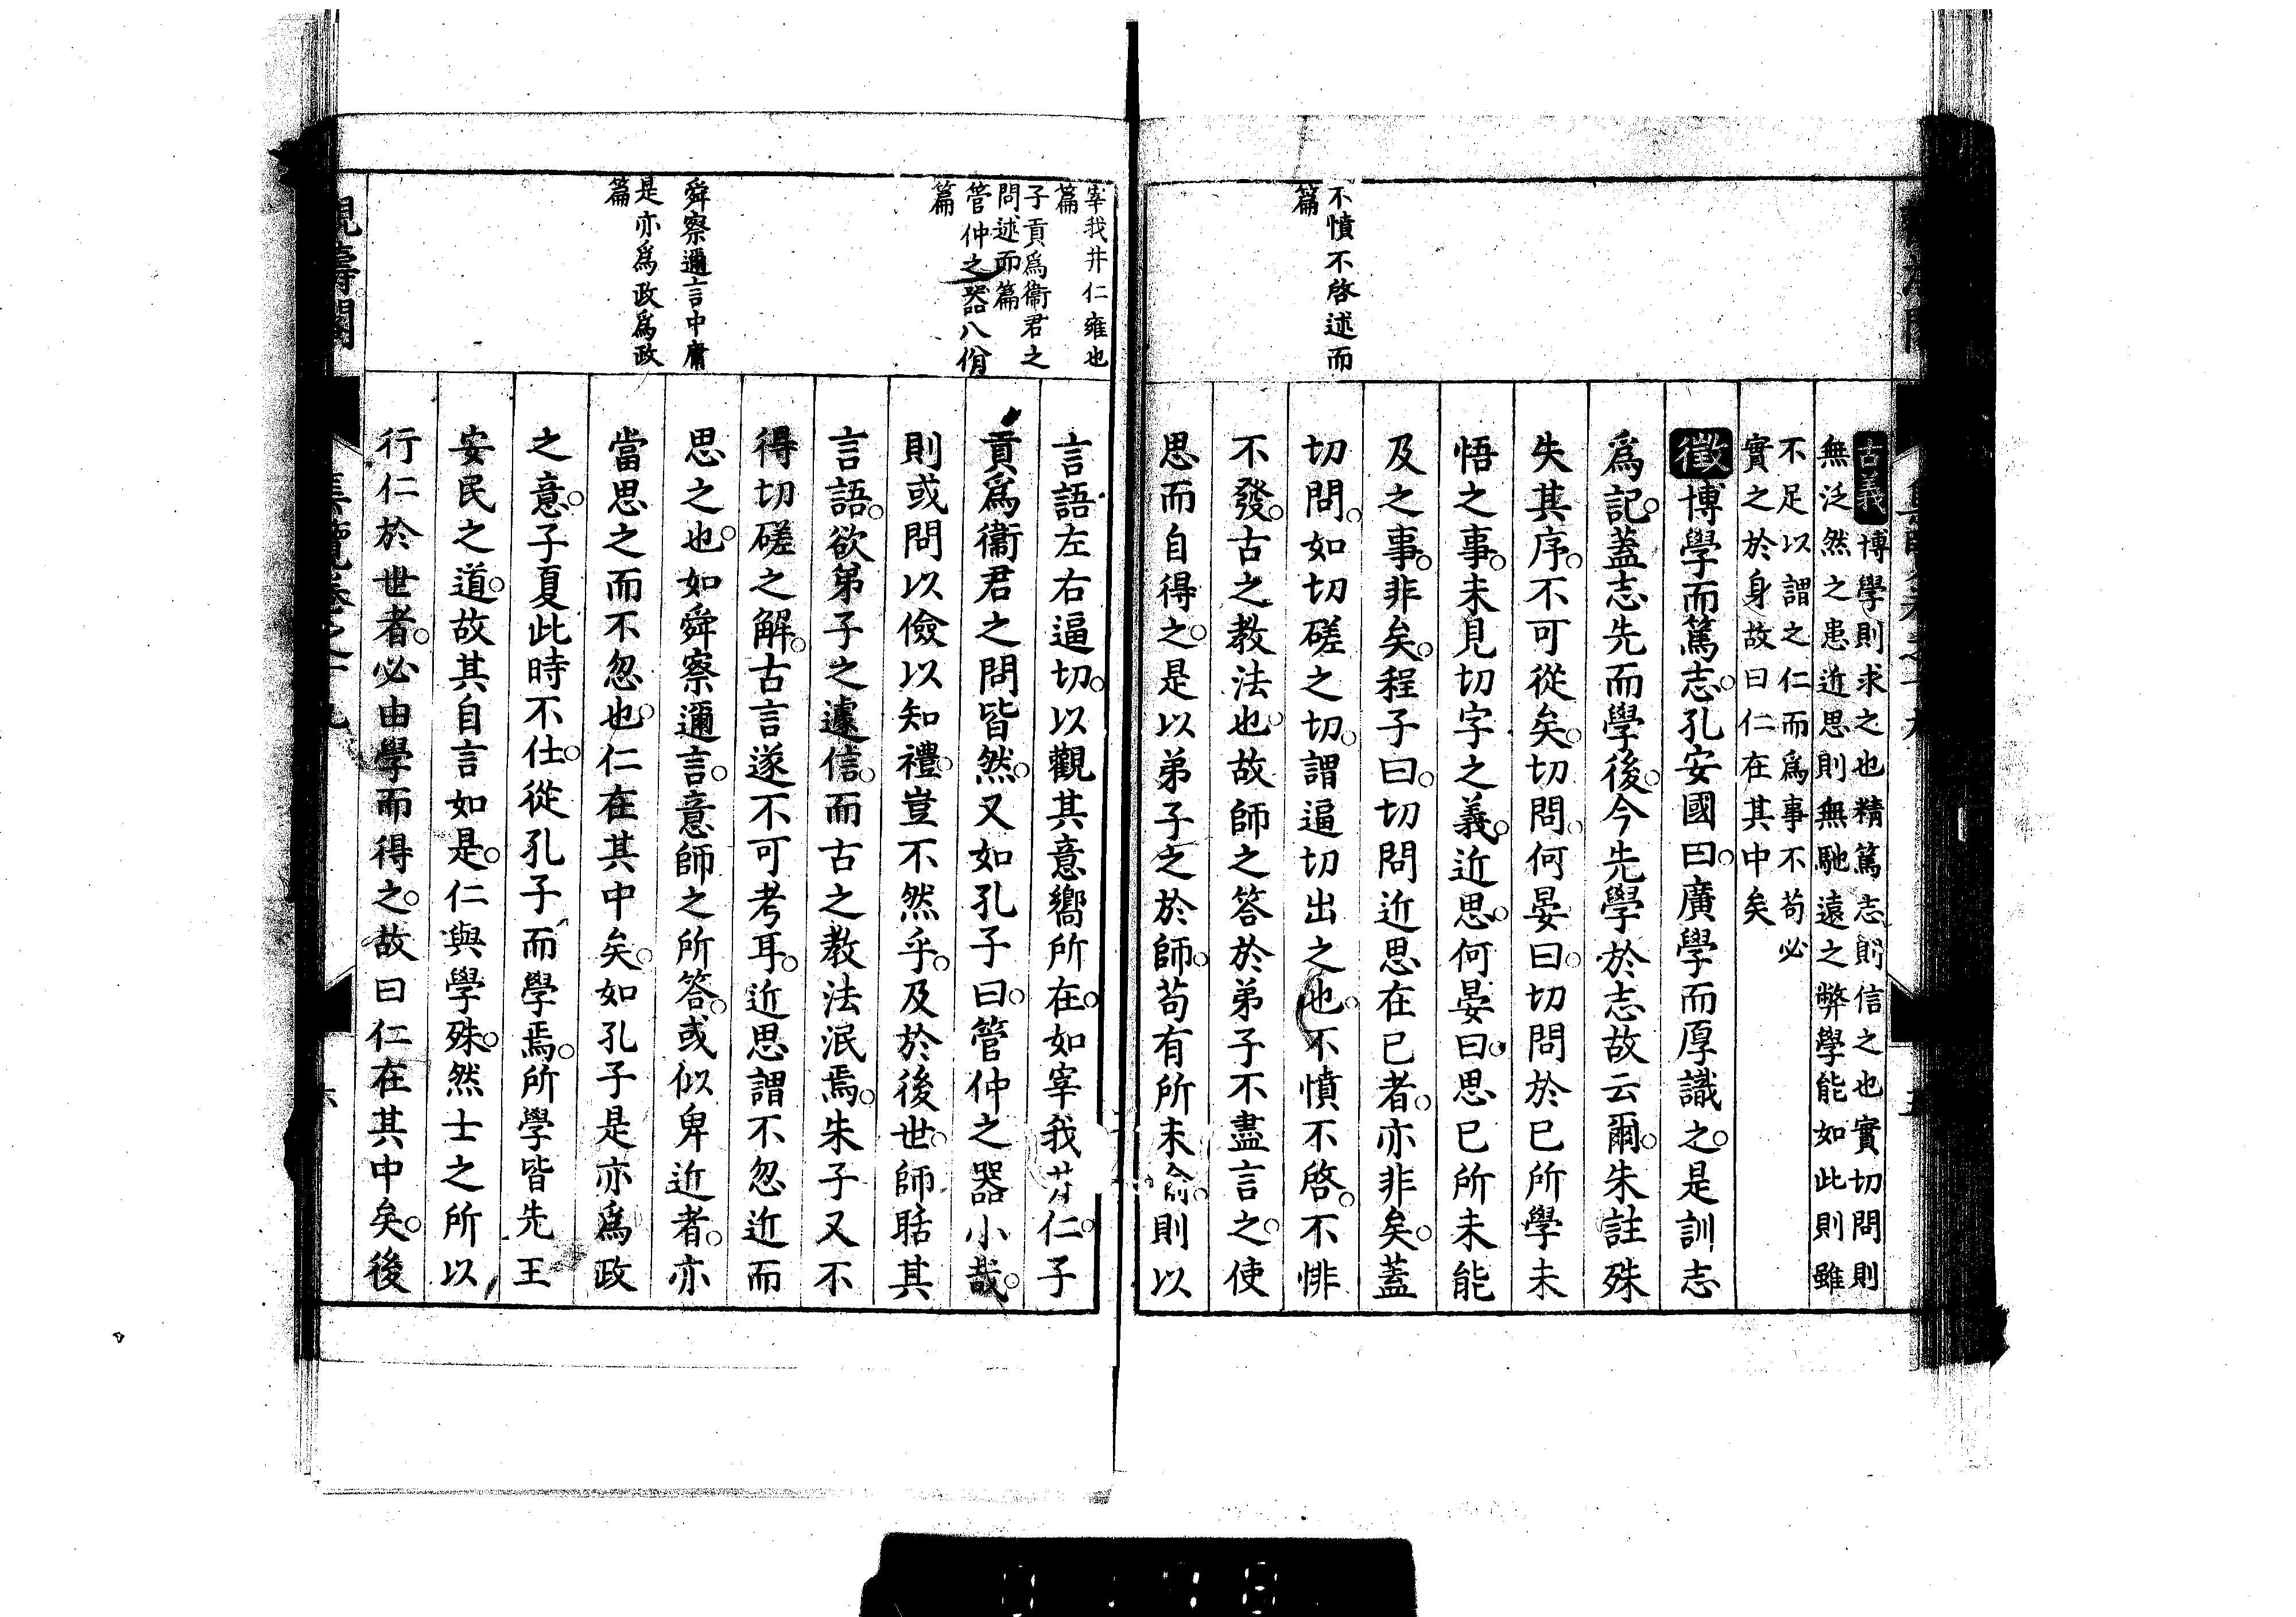 不憤不啓述而
篇
古義博學則求之也精篤志則信之也實切問則
無泛然之患近思則無馳遠之弊學能如此則雖
不足以謂之仁而爲事不苟必
實之於身故曰仁在其中矣
徵博學而篤志孔安國曰廣學而厚識之是訓志
爲記蓋志先而學後今先學於志故云爾朱註殊
失其序不可從矣切問何晏曰切問於已所學未
悟之事未見切字之義近思何晏曰思已所未能
及之事非矣程子曰切問近思在已者亦非矣蓋
切問如切磋之切謂逼切出之也不憤不啓不悱
不發古之教法也故師之答於弟子不盡言之使
思而自得之是以弟子之於師苟有所未喻則以
宰我井仁雍也
篇
子貢爲衞君之
問述而篇
管仲之器八佾
篇
舜察邇言中庸
是亦爲政爲政
篇
言語左右逼切以觀其意嚮所在如宰我井仁子
貢爲衞君之問皆然又如孔子曰管仲之器小哉
則或問以儉以知禮豈不然乎及於後世師聒其
言語欲弟子之遽信而古之教法泯焉朱子又不
得切磋之解古言遂不可考耳近思謂不忽近而
思之也如舜察邇言意師之所答或似卑近者亦
當思之而不忽也仁在其中矣如孔子是亦爲政
之意子夏此時不仕從孔子而學焉所學皆先王
安民之道故其自言如是仁與學殊然士之所以
行仁於世者必由學而得之故曰仁在其中矣後